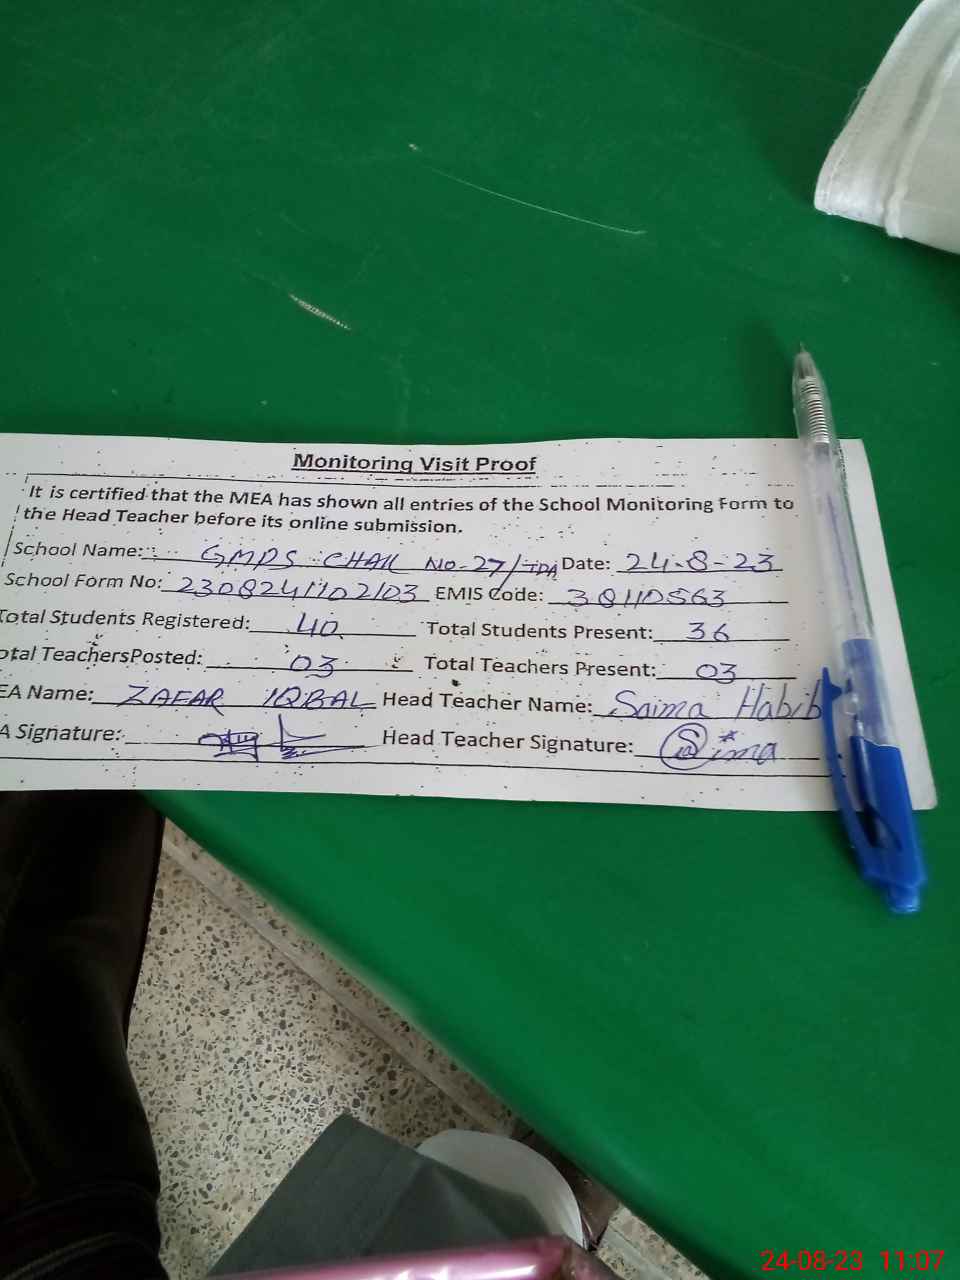 Monitoring Visit Proof
It is certified that the MEA has shown all entries of the School Monitoring Form to
the Head Teacher before its online submission.
School Name: GMPS CHAK NO-27/TDA Date: 24-8-23
School Form No: 2308241102103 EMIS Code: 38110563
Total Students Registered: 40 Total Students Present: 36
otal TeachersPosted: 03 Total Teachers Present: 03
EA Name: ZAFAR IQBAL Head Teacher Name: Saima Habib
A Signature: Head Teacher Signature: Saima
24-08-23 11:07